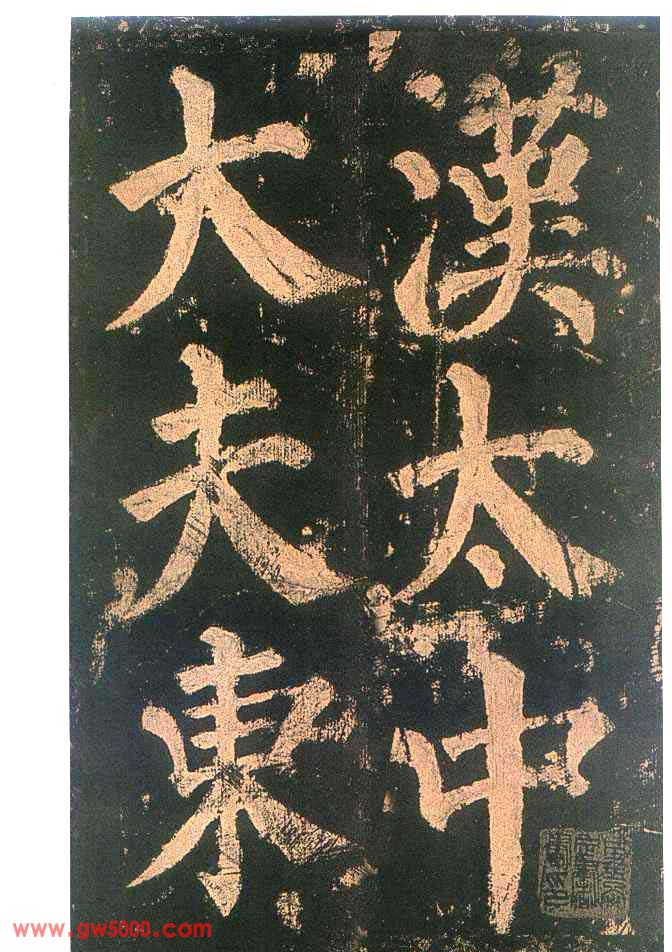 漢太中
大夫東
www.gw5000.com